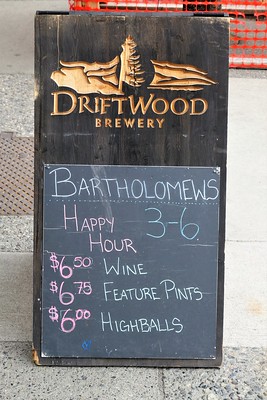 DRIFTWOOD
BREWERY
BARTHOLOMEWS
HAPPY 3-6
HOUR
$6.50 WINE
$6.75 FEATURE PINTS
$6.00 HIGHBALLS